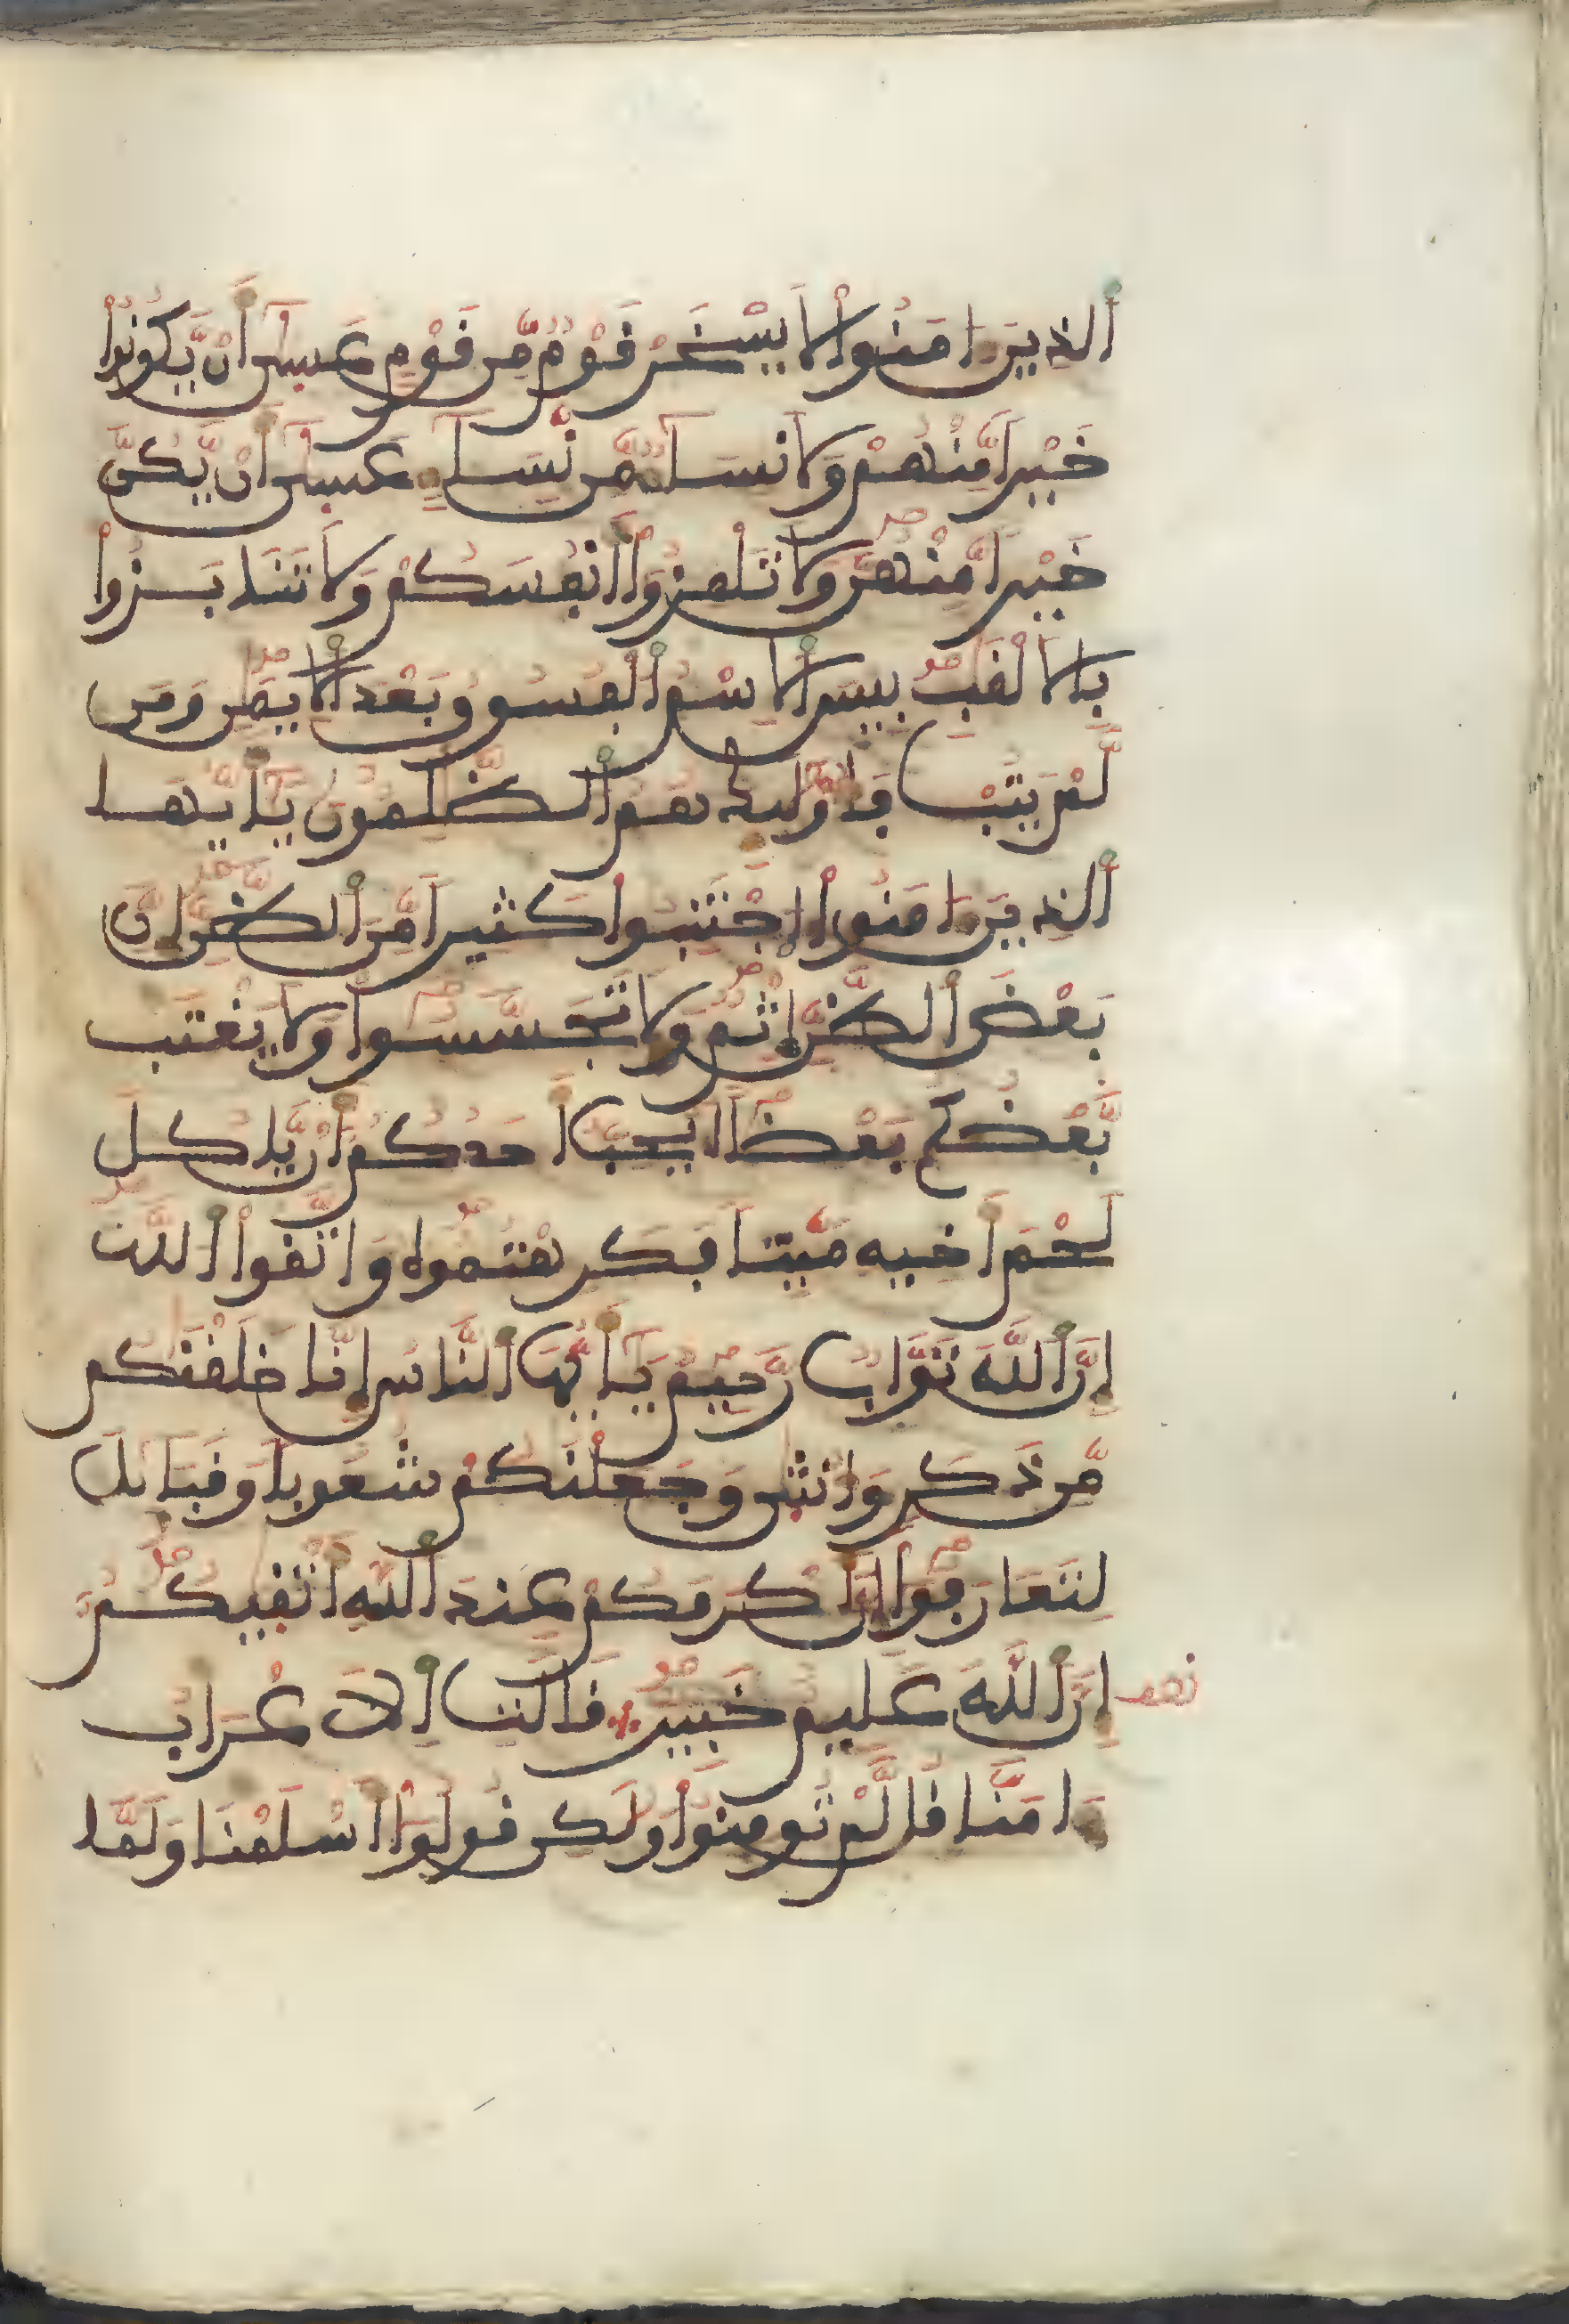 الذين ءامنوا لا يسخر قوم من قوم عسى أن يكونوا
خيرا منهم ولا نساء من نساء عسى أن يكن
خيرا منهن ولا تلمزوا أنفسكم ولا تنابزوا
بالالقب بيس الاسم الفسوق بعد الايمن ومن
لم يتب فأولئك هم الظلمون يأيها
الذين ءامنوا اجتنبوا كثيرا من الظن إن
بعض الظن إثم ولا تجسسوا ولا يغتب
بعضكم بعضا أيحب أحدكم أن ياكل
لحم أخيه ميتا فكرهتموه واتقوا الله
إن الله تواب رحيم يأيها الناس إنا خلقنكم
من ذكر وأنثى وجعلنكم شعوبا وقبايل
لتعارفوا إن أكرمكم عند الله أتقيكم
إن الله عليم خبير قالت الاعراب
ءامنا قل لم تومنوا ولكن قولوا أسلمنا ولما